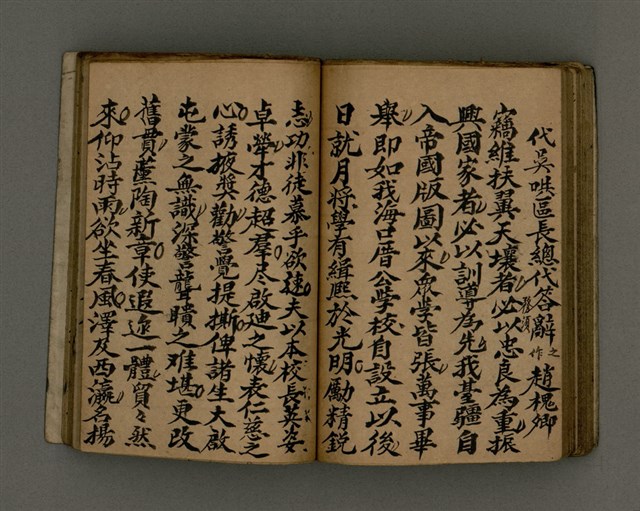 代吳哖區長總代答辭之作 趙槐卿
竊維扶翼天壤者必以忠良為重振
興國家者必以訓導為先我臺疆自
入帝國版圖以來眾学皆張萬事畢
舉即如我海口厝公学校自設立以後
日就月將學有緝熙於光明勵精銳
志功非徒慕乎欲速夫以本校長英姿
卓犖才德超羣尽啟廸之懷表仁慈之
心誘掖獎勸警覺提撕俾諸生大啟
屯蒙之無識深警聾聵之难堪更改
舊貫薰陶新章使遐迩一體貿々然
來仰沾時雨欲坐春風澤及西瀛名揚